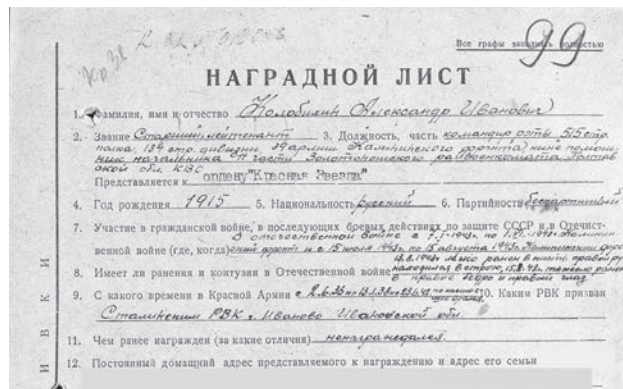 99
Все графы заполнять полностью
НАГРАДНОЙ ЛИСТ
1. Фамилия, имя и отчество Колобилин Александр Иванович
2. Звание Старший лейтенант 3. Должность, часть командир роты 515 стр.
полка, 134 стр. дивизии, 39 армии Калининского фронта, ныне помощ-
ник начальника части Золотоношского райвоенкомата Полтав-
ской обл. КВО
Представляется к ордену "Красная Звезда"
4. Год рождения 1915 5. Национальность русский 6. Партийность беспартийный
7. Участие в гражданской войне, в последующих боевых действиях по защите СССР и в Отечест-
В отечественной войне с
венной войне (где, когда) фронт и с 15 июля 1943г. по 15 августа 1943г. Калининский фронт
легко ранен в
8. Имеет ли ранения и контузии в Отечественной войне находился в строю, 15.8.43г. тяжело ранен
в правое бедро и правый глаз
9. С какого времени в Красной Армии с 10. Каким РВК призван
Сталинским РВК г. Иваново Ивановской обл.
11. Чем ранее награжден (за какие отличия) ненаграждался
12. Постоянный домашний адрес представляемого к награждению и адрес его семьи
И В К И